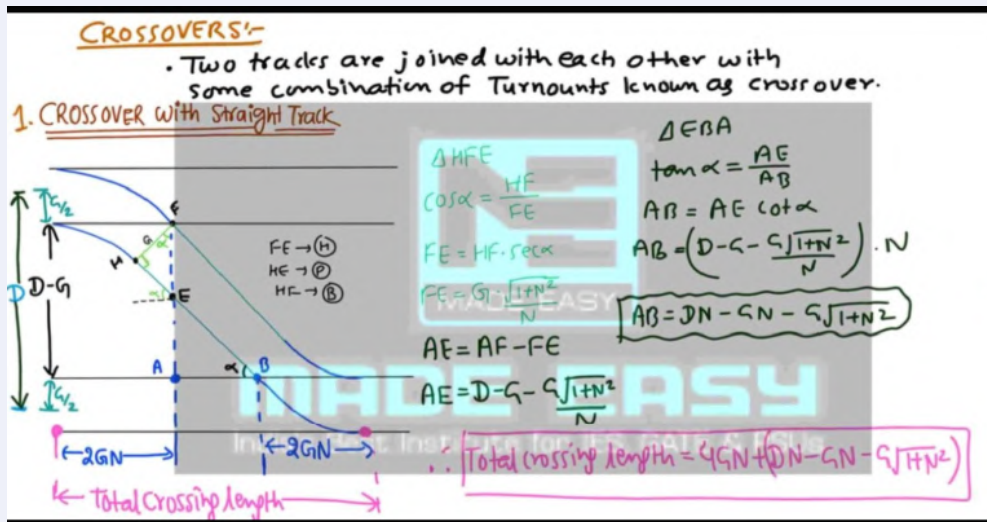 CROSSOVERS:-
• Two tracks are joined with each other with
some combination of Turnouts known as crossover.
1. CROSSOVER with Straight Track
G/2
D
D-G
G/2
F
G
α
H
α
E
A
α
B
FE → (H)
HE → (P)
HF → (B)
2GN
2GN
Total Crossing length
ΔHFE
cosα = HF/FE
FE = HF·secα
FE = G √1+N²/N
AE = AF - FE
AE = D-G- G√1+N²/N
ΔEBA
tanα = AE/AB
AB = AE cotα
AB = (D-G- G√1+N²/N) . N
AB = DN - GN - G√1+N²
∴ Total crossing length = 4GN+(DN-GN-G√1+N²)
MADE EASY
MADE EASY
Independent Institute for IES, GATE & PSUs